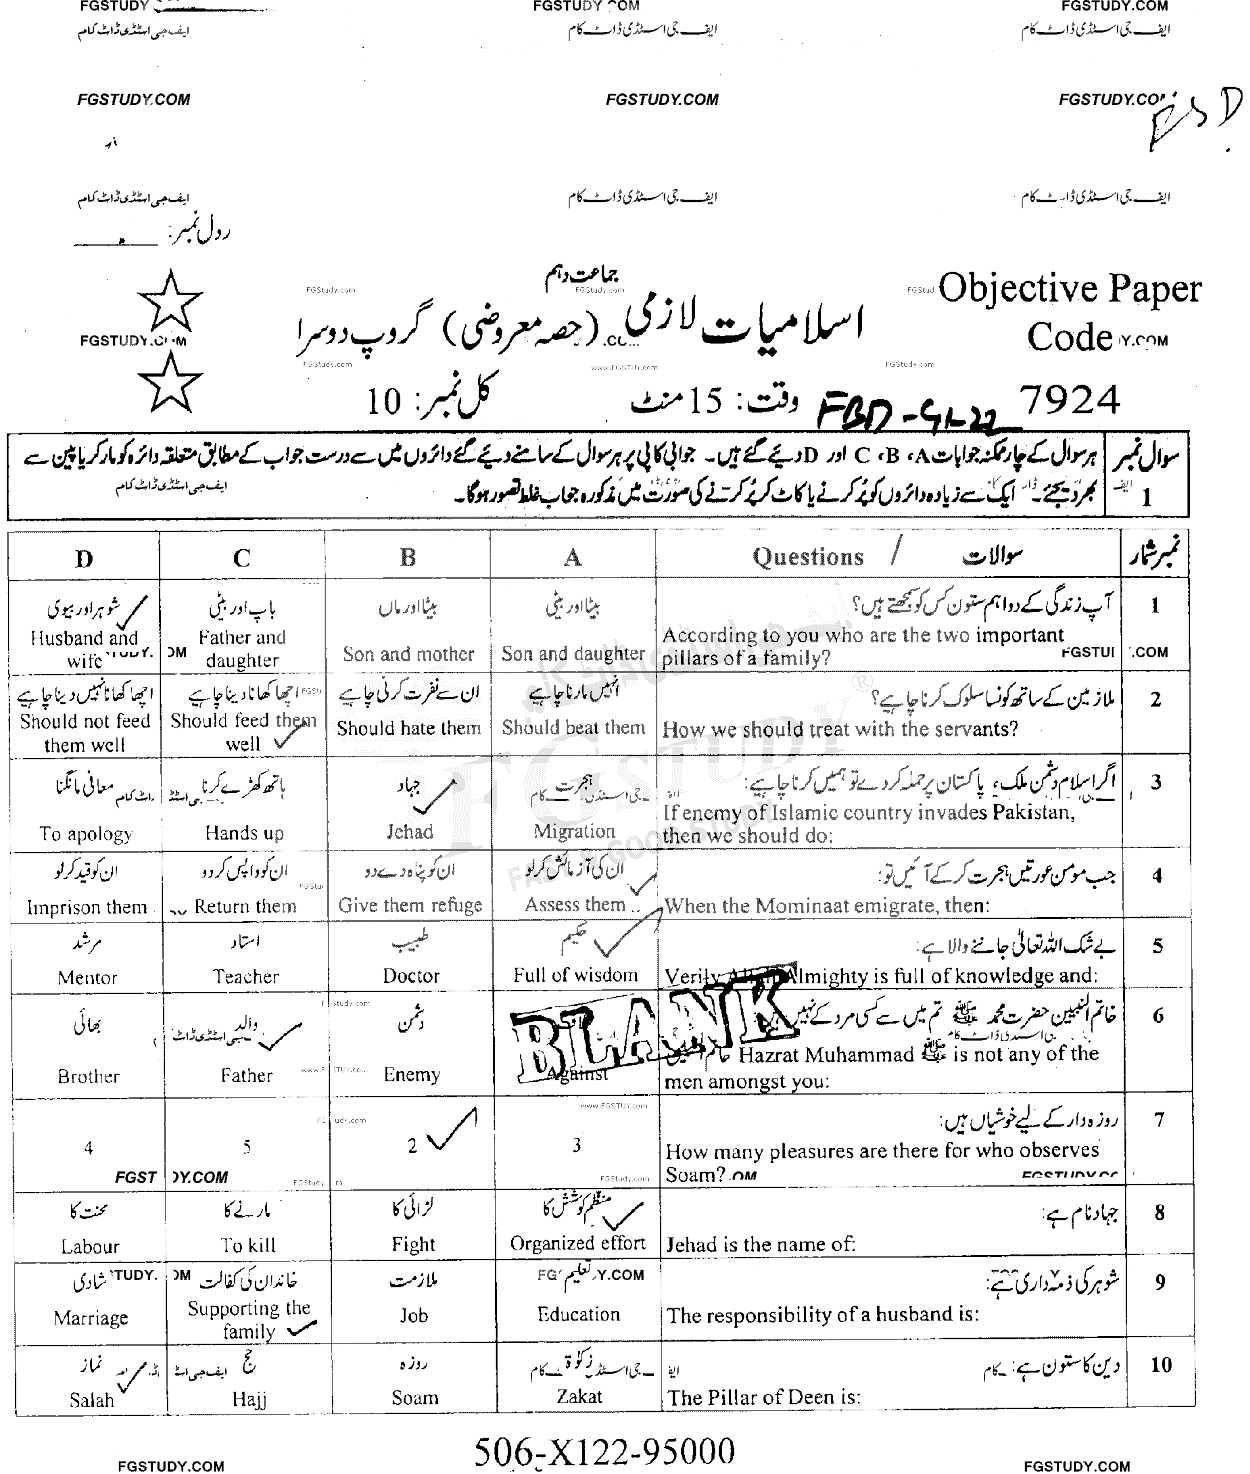 FGSTUDY FGSTUDY COM FGSTUDY.COM
ایف جی اسٹڈی ڈاٹ کام ایف جی اسٹڈی ڈاٹ کام ایف جی اسٹڈی ڈاٹ کام
FGSTUDY.COM FGSTUDY.COM FGSTUDY.CO
FSD
ایف جی اسٹڈی ڈاٹ کام ایف جی اسٹڈی ڈاٹ کام ایف جی اسٹڈی ڈاٹ کام
رول نمبر:
جماعت دہم
Objective Paper
اسلامیات لازمی (حصہ معروضی) گروپ دوسرا
Code
7924
وقت: 15 منٹ
کل نمبر: 10
FBD-G1-22
سوال نمبر 1
ہر سوال کے چار ممکنہ جوابات A، B، C اور D دیئے گئے ہیں۔ جوابی کاپی پر ہر سوال کے سامنے دیئے گئے دائروں میں سے درست جواب کے مطابق متعلقہ دائرہ کو مارکر یا پین سے
بھر دیجئے۔ ایک سے زیادہ دائروں کو پُر کرنے یا کاٹ کر پُر کرنے کی صورت میں مذکورہ جواب غلط تصور ہوگا۔
نمبر شمار سوالات / Questions A B C D
1 آپ زندگی کے دو اہم ستون کس کو سمجھتے ہیں؟
According to you who are the two important
pillars of a family?
بیٹا اور بیٹی
Son and daughter
بیٹا اور ماں
Son and mother
باپ اور بیٹی
Father and
daughter
شوہر اور بیوی
Husband and
wife
2 ملازمین کے ساتھ کونسا سلوک کرنا چاہیے؟
How we should treat with the servants?
انہیں مارنا چاہیے
Should beat them
ان سے نفرت کرنی چاہیے
Should hate them
اچھا کھانا دینا چاہیے
Should feed them
well
اچھا کھانا نہیں دینا چاہیے
Should not feed
them well
3 اگر اسلام دشمن ملک، پاکستان پر حملہ کر دے تو ہمیں کرنا چاہیے:
If enemy of Islamic country invades Pakistan,
then we should do:
ہجرت
Migration
جہاد
Jehad
ہاتھ کھڑے کرنا
Hands up
معافی مانگنا
To apology
4 جب مومن عورتیں ہجرت کر کے آئیں تو:
When the Mominaat emigrate, then:
ان کی آزمائش کر لو
Assess them
ان کو پناہ دے دو
Give them refuge
ان کو واپس کر دو
Return them
ان کو قید کر لو
Imprison them
5 بے شک اللہ تعالیٰ جاننے والا ہے:
Verily Almighty is full of knowledge and:
حکیم
Full of wisdom
طبیب
Doctor
استاد
Teacher
مرشد
Mentor
6 خاتم النبیین حضرت محمد ﷺ تم میں سے کسی مرد کے نہیں
Hazrat Muhammad ﷺ is not any of the
men amongst you:
BLANK
Against
دشمن
Enemy
والد
Father
بھائی
Brother
7 روزہ دار کے لیے خوشیاں ہیں:
How many pleasures are there for who observes
Soam?
3 2 5 4
8 جہاد نام ہے:
Jehad is the name of:
منظم کوشش کا
Organized effort
لڑائی کا
Fight
مارنے کا
To kill
محنت کا
Labour
9 شوہر کی ذمہ داری ہے:
The responsibility of a husband is:
تعلیم
Education
ملازمت
Job
خاندان کی کفالت
Supporting the
family
شادی
Marriage
10 دین کا ستون ہے:
The Pillar of Deen is:
زکوٰۃ
Zakat
روزہ
Soam
حج
Hajj
نماز
Salah
506-X122-95000
FGSTUDY.COM FGSTUDY.COM